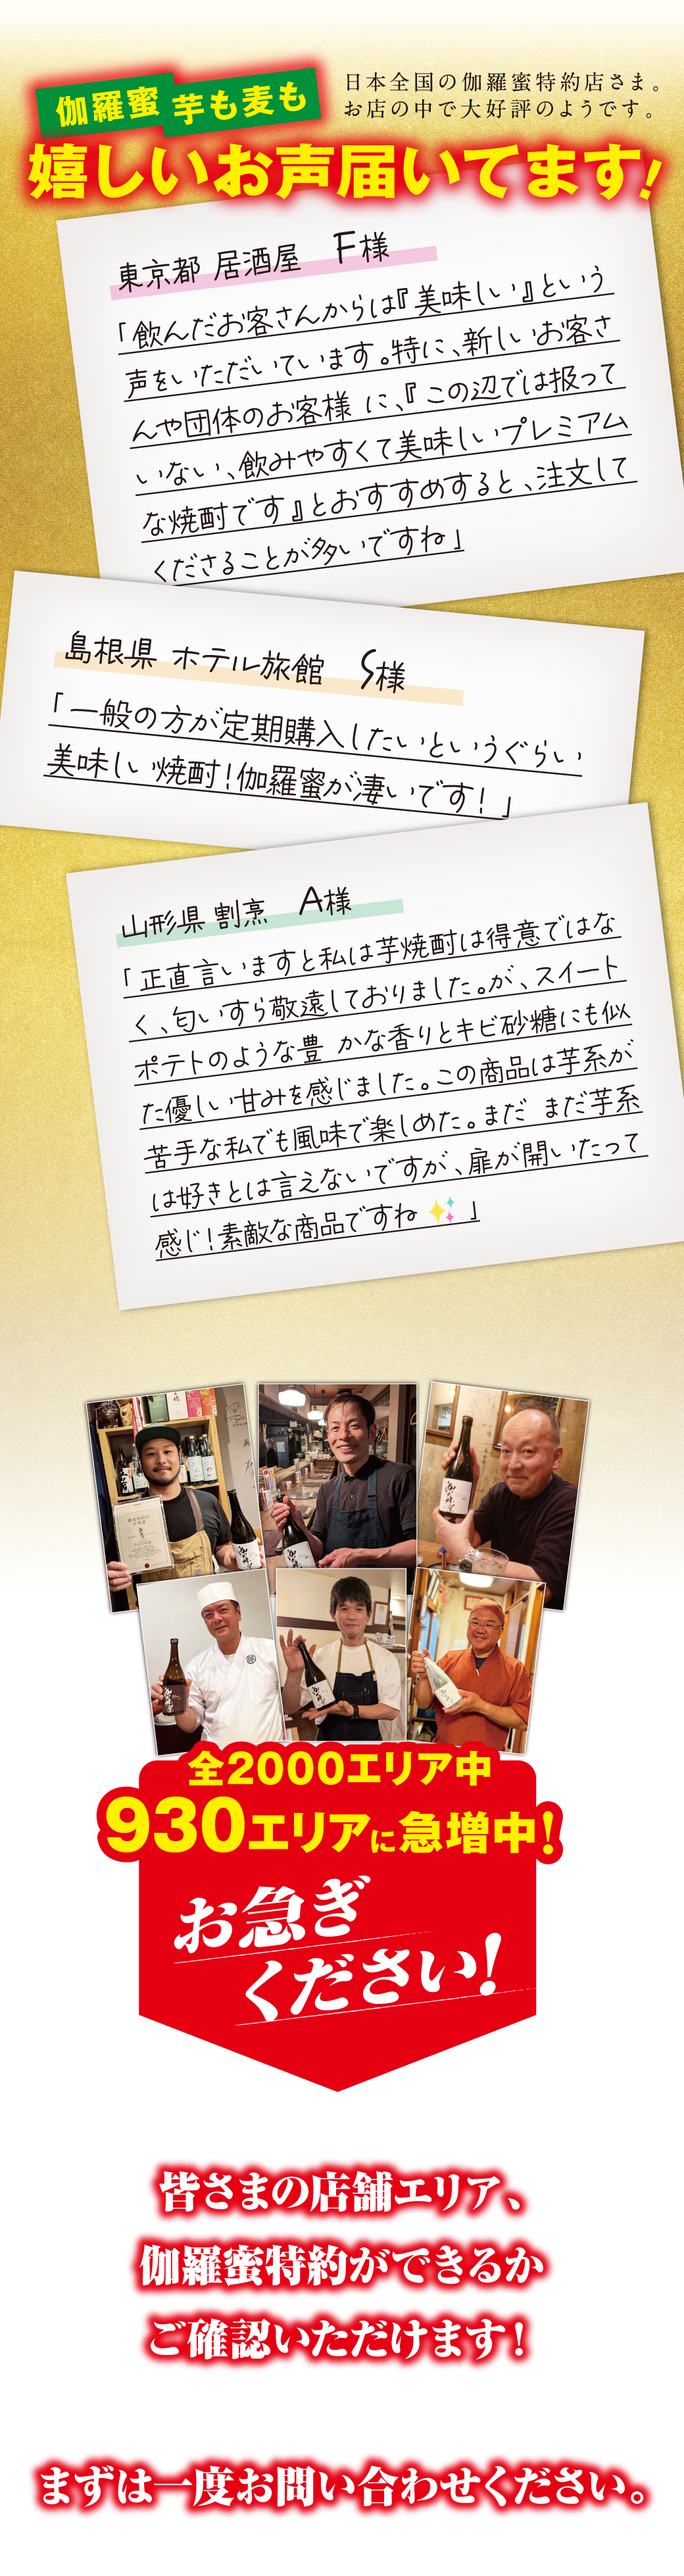 伽羅蜜 芋も麦も
日本全国の伽羅蜜特約店さま。
お店の中で大好評のようです。
嬉しいお声届いてます!
東京都 居酒屋 F様
「飲んだお客さんからは『美味しい』という
声をいただいています。特に、新しいお客さ
んや団体のお客様 に、『この辺では扱って
いない、飲みやすくて美味しいプレミアム
な焼酎です』とおすすめすると、注文して
くださることが多いですね」
島根県 ホテル旅館 S様
「一般の方が定期購入したいというぐらい
美味しい焼酎!伽羅蜜が凄いです!」
山形県 割烹 A様
「正直言いますと私は芋焼酎は得意ではな
く、匂いすら敬遠しておりました。が、スイート
ポテトのような豊 かな香りとキビ砂糖にも似
た優しい甘みを感じました。この商品は芋系が
苦手な私でも風味で楽しめた。まだ まだ芋系
は好きとは言えないですが、扉が開いたって
感じ!素敵な商品ですね✨」
全2000エリア中
930エリアに急増中!
お急ぎ
ください!
皆さまの店舗エリア、
伽羅蜜特約ができるか
ご確認いただけます!
まずは一度お問い合わせください。